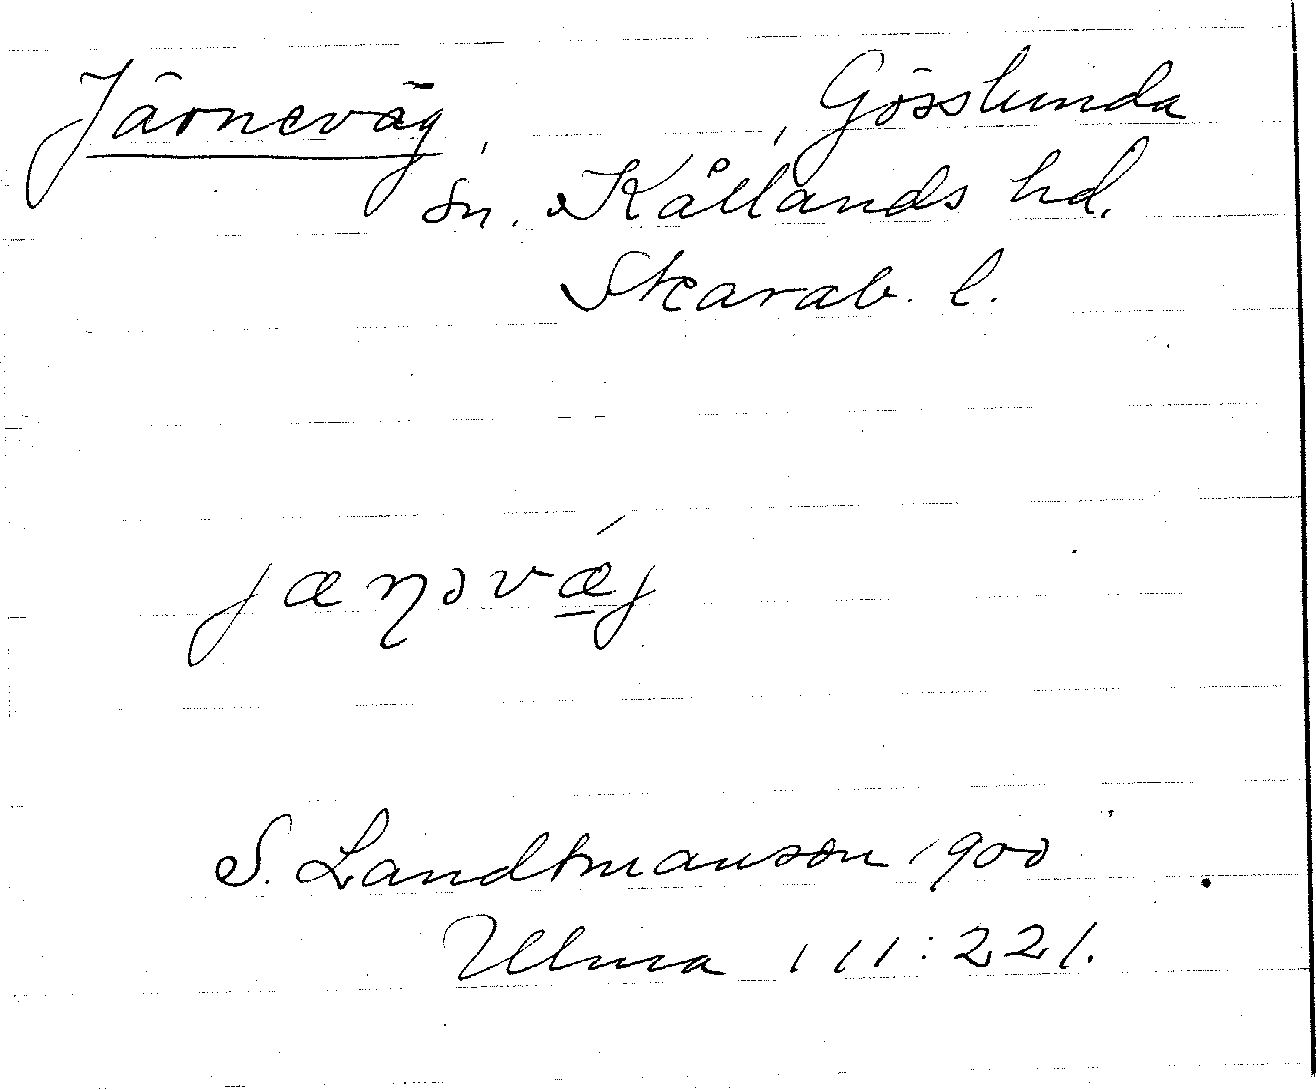 Järneväg, , Gösslunda
sn. Kållands hd.
Skarab. l.
jæŋəvǽ̱j
S. Landtmanson 1900
Ulma 111:221.